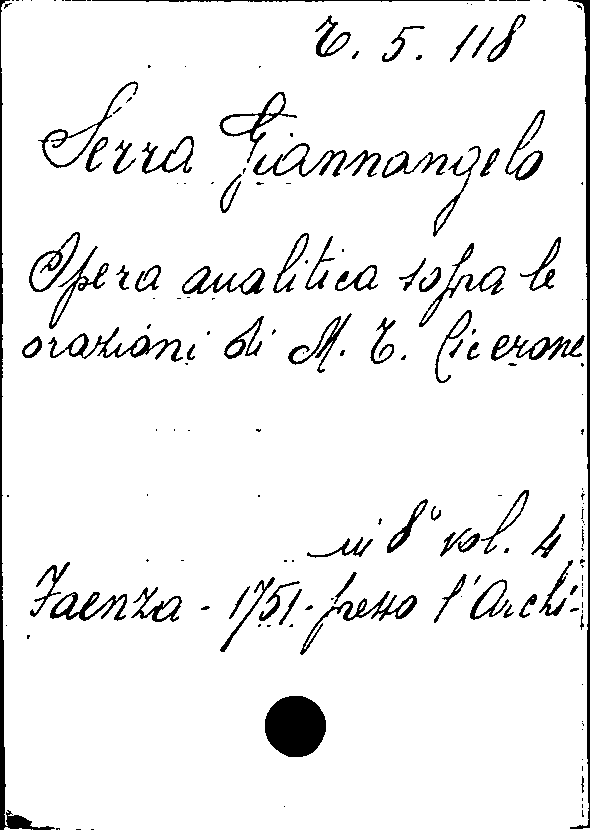 T. 5. 118
Serra Giannangelo
Opera analitica sopra le
orazioni di M. T. Cicerone
in 8° vol. 4
Faenza - 1751 - presso l'Archi-